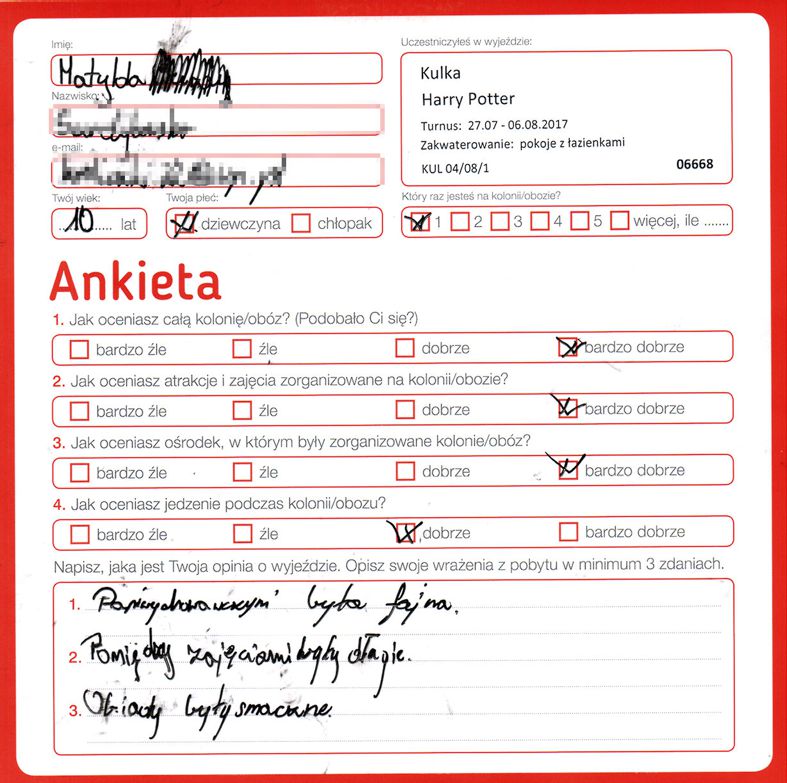 Imię:
Matylda
Nazwisko:
e-mail:
Twój wiek:
10 lat
Twoja płeć:
dziewczyna chłopak
Uczestniczyłeś w wyjeździe:
Kulka
Harry Potter
Turnus: 27.07 - 06.08.2017
Zakwaterowanie: pokoje z łazienkami
KUL 04/08/1 06668
Który raz jesteś na kolonii/obozie?
1 2 3 4 5 więcej, ile .......
Ankieta
1. Jak oceniasz całą kolonię/obóz? (Podobało Ci się?)
bardzo źle źle dobrze bardzo dobrze
2. Jak oceniasz atrakcje i zajęcia zorganizowane na kolonii/obozie?
bardzo źle źle dobrze bardzo dobrze
3. Jak oceniasz ośrodek, w którym były zorganizowane kolonie/obóz?
bardzo źle źle dobrze bardzo dobrze
4. Jak oceniasz jedzenie podczas kolonii/obozu?
bardzo źle źle dobrze bardzo dobrze
Napisz, jaka jest Twoja opinia o wyjeździe. Opisz swoje wrażenia z pobytu w minimum 3 zdaniach.
1. była fajna.
2. zajęciami były długie.
3. Obiady były smaczne.